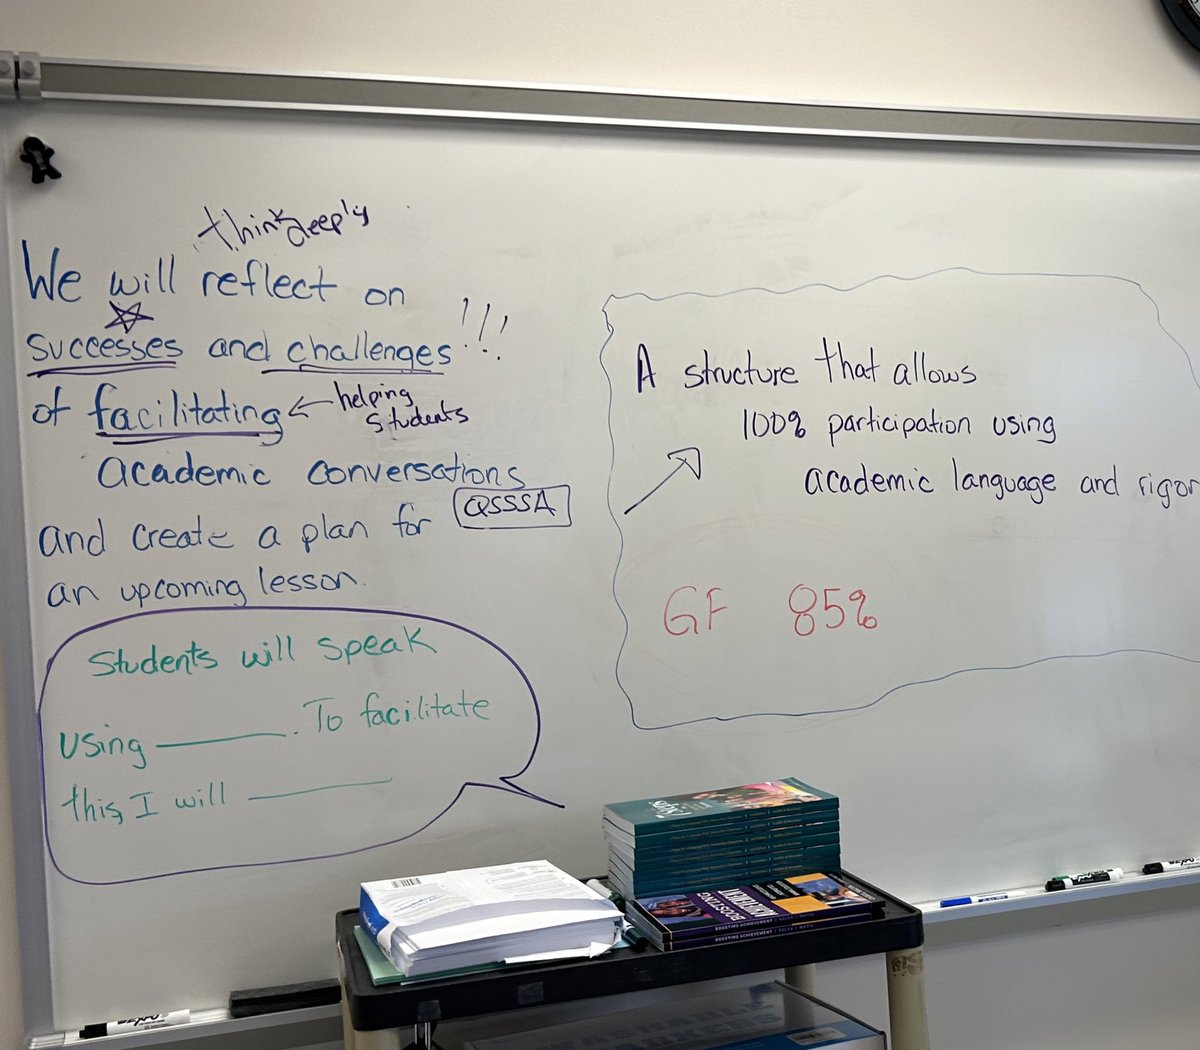 think deeply
We will reflect on
successes and challenges !!!
of facilitating ← helping
students
academic conversations
and create a plan for QSSSA
an upcoming lesson.
Students will speak
using ______. To facilitate
this, I will ______
A structure that allows
100% participation using
academic language and rigor
GF 85%
BOOSTING
ACHIEVEMENT
BOOSTING ACHIEVEMENT
BOOSTING ACHIEVEMENT
EXPO